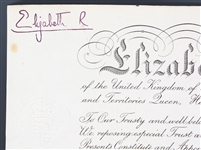 Elizabeth R
Elizab
of the United Kingdom of
and Territories Queen, H
To Our Trusty and well bel
We reposing especial Trust a
Presents Constitute and Appo